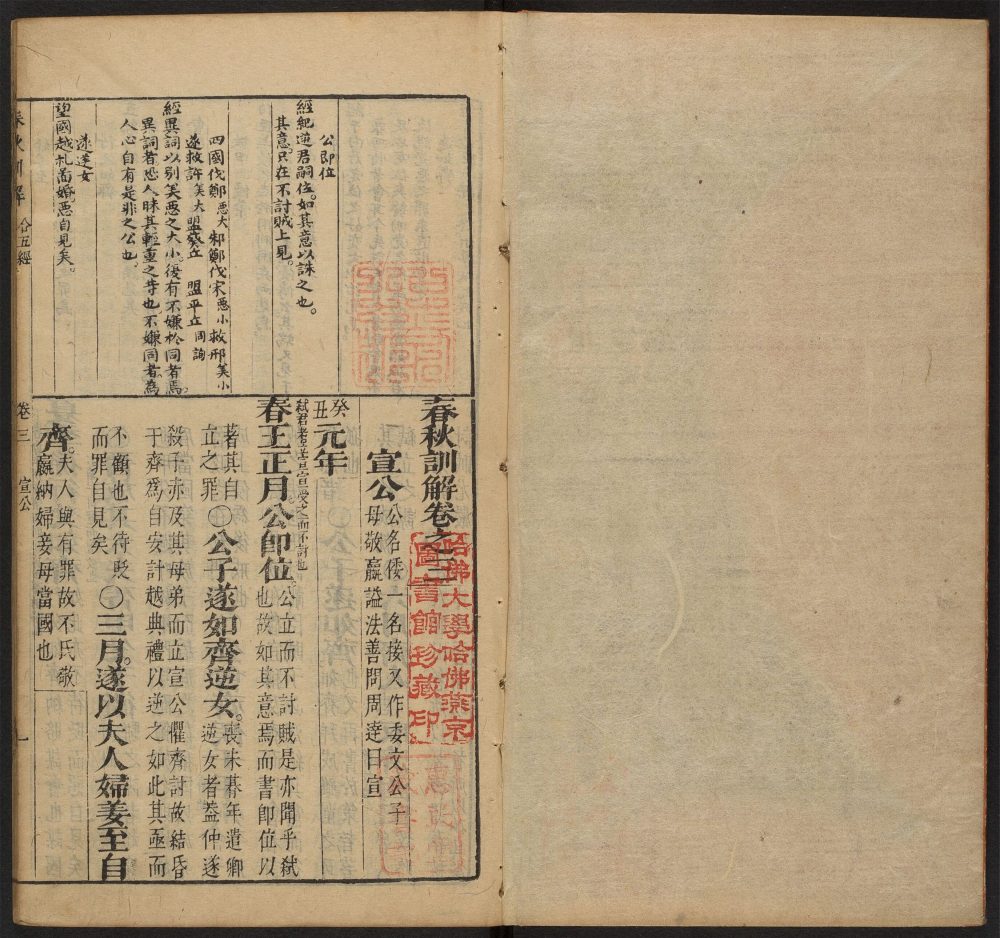 春秋訓解卷之三
宣公 公名倭一名接又作委文公子
母敬嬴謚法善問周達曰宣
癸丑 元年
弑君者是宣受之而不討也
春王正月公即位 公立而不討賊是亦聞乎弑
也故如其意焉而書即位以
著其自
立之罪 ○公子遂如齊逆女 喪未朞年遣卿
逆女者葢仲遂
殺子赤及其母弟而立宣公懼齊討故結昏
于齊爲自安計越典禮以逆之如此其亟而
不顧也不待貶
而罪自見矣 ○三月遂以夫人婦姜至自
齊 夫人與有罪故不氏敬
嬴納婦妾母當國也
公即位
經紀逆君嗣位如其意以誅之也
其意只在不討賊上見
四國伐鄭惡大 邾鄭伐宋惡小 救邢美小
遂救許美大 盟葵丘 盟平丘 同詢
經異詞以別美惡之大小後有不嫌於同者焉
異詞者恐人昧其輕重之等也不嫌同者爲
人心自有是非之公也
遂逆女
望國越札啚婚惡自見矣
春秋訓解 合五經
卷三 宣公 一
哈佛大學哈佛燕京
圖書館珍藏印